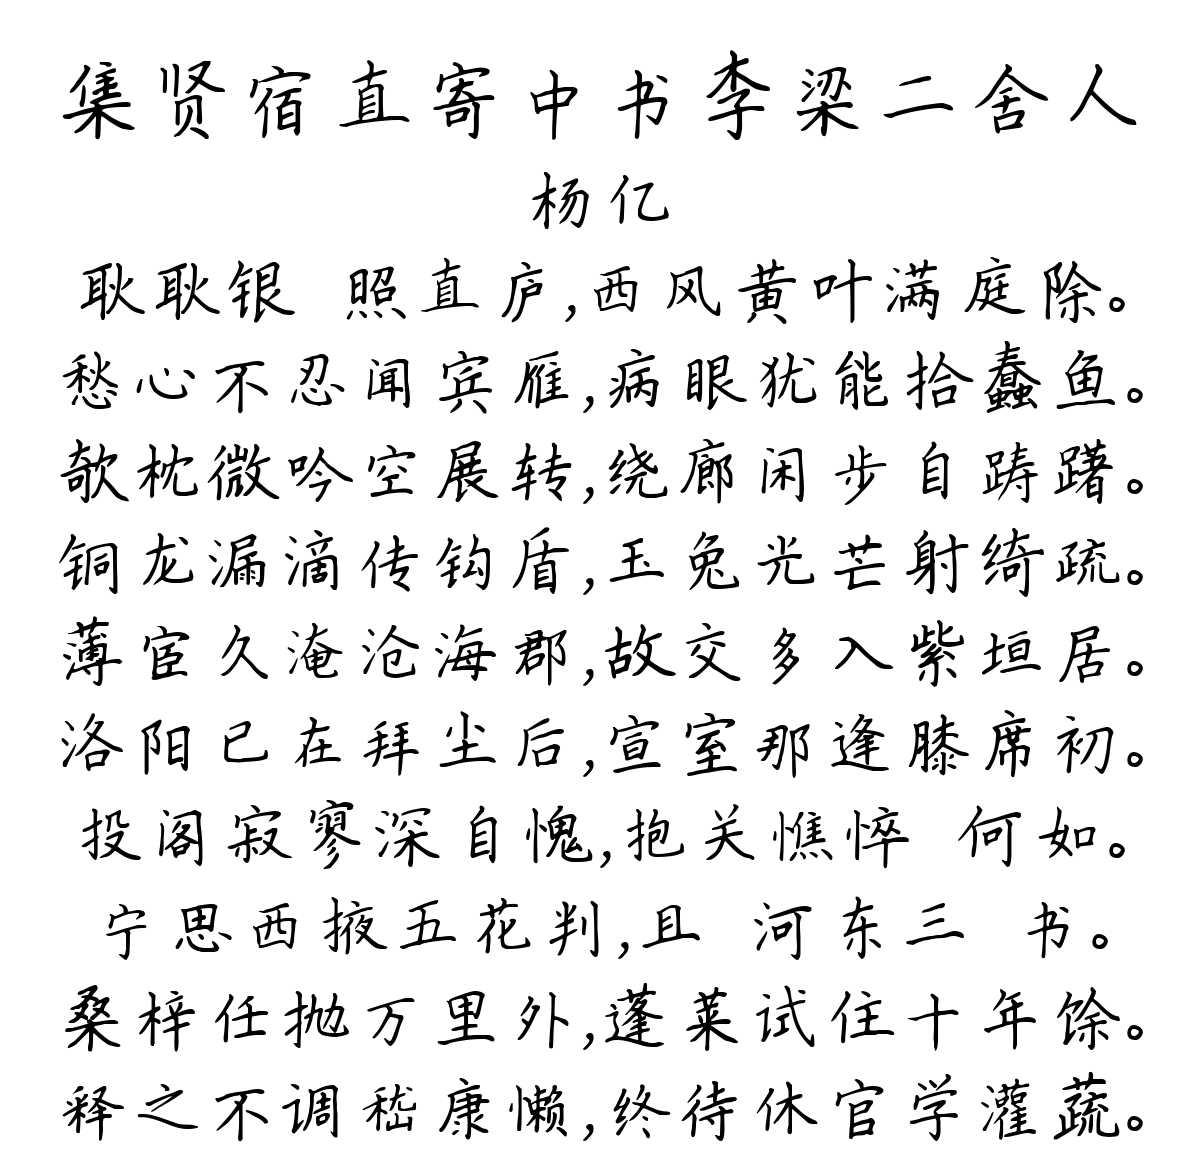 集贤宿直寄中书李梁二舍人
杨亿
耿耿银 照直庐,西风黄叶满庭除。
愁心不忍闻宾雁,病眼犹能拾蠹鱼。
欹枕微吟空展转,绕廊闲步自踌躇。
铜龙漏滴传钩盾,玉兔光芒射绮疏。
薄宦久淹沧海郡,故交多入紫垣居。
洛阳已在拜尘后,宣室那逢膝席初。
投阁寂寥深自愧,抱关憔悴 何如。
宁思西掖五花判,且 河东三 书。
桑梓任抛万里外,蓬莱试住十年馀。
释之不调嵇康懒,终待休官学灌蔬。